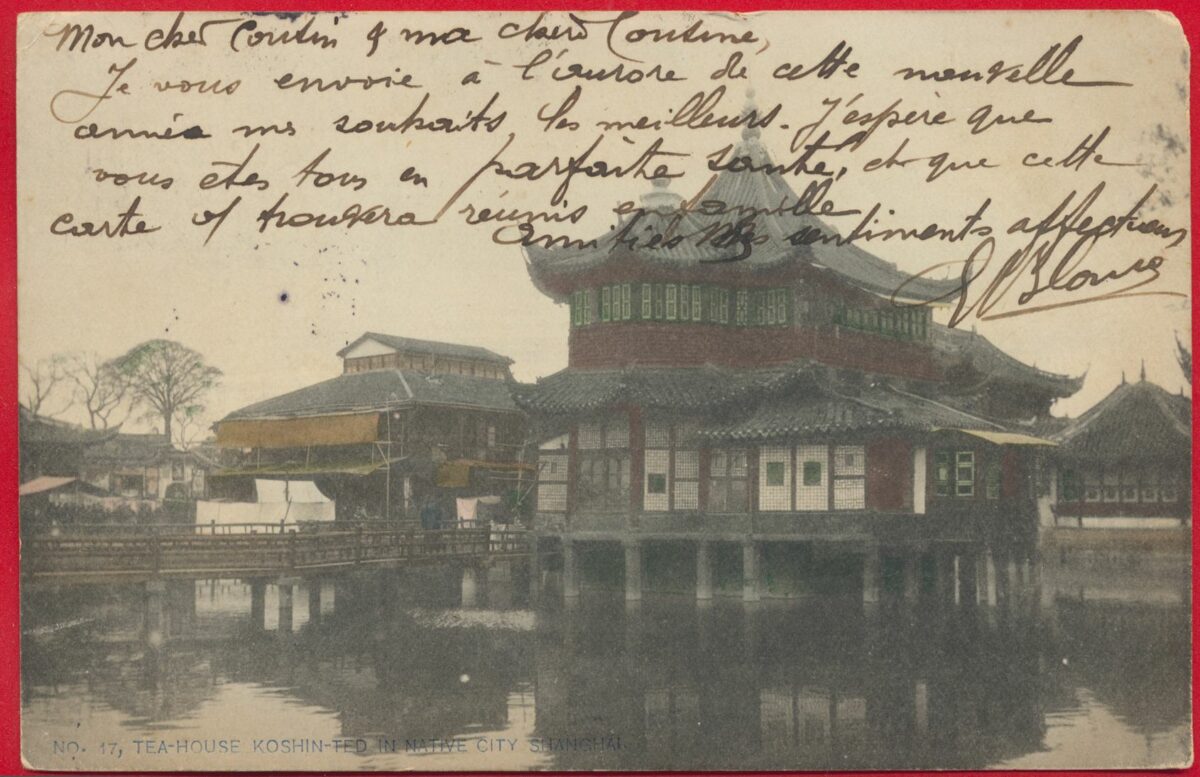 Mon cher Cousin & ma chère Cousine,
Je vous envoie à l'aurore de cette nouvelle
année mes souhaits, les meilleurs. J'espère que
vous êtes tous en parfaite santé, et que cette
carte vs trouvera réunis en famille
Amitiés Mes sentiments affectueux
NO. 17, TEA-HOUSE KOSHIN-TED IN NATIVE CITY SHANGHAI.